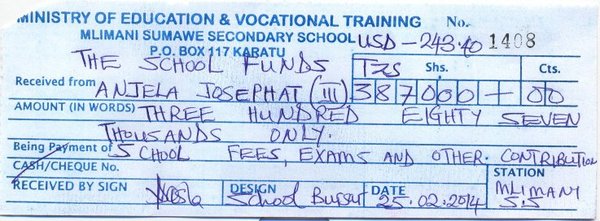 MINISTRY OF EDUCATION & VOCATIONAL TRAINING No.
MLIMANI SUMAWE SECONDARY SCHOOL USD - 243.40 1408
P.O. BOX 117 KABATU
THE SCHOOL FUNDS TZS Shs. Cts.
Received from ANJELA JOSEPHAT (III) 387000 - 00
AMOUNT (IN WORDS) THREE HUNDRED EIGHTY SEVEN
THOUSANDS ONLY.
Being Payment of SCHOOL FEES, EXAMS AND OTHER CONTRIBUTION
CASH/CHEQUE No. STATION
RECEIVED BY SIGN DESIGN School Bursur DATE 25.02.2014 MLIMANI
S.S